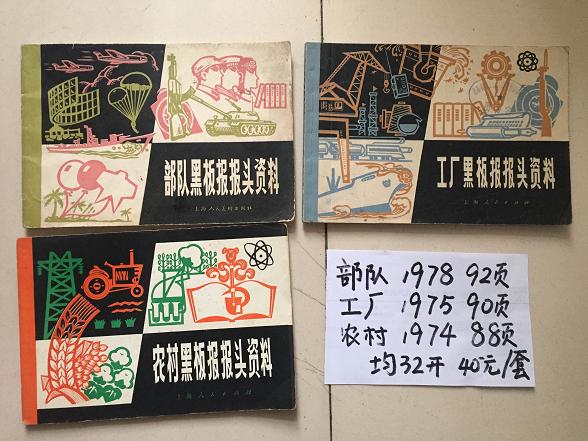 部队黑板报报头资料
上海人民美术出版社
工厂黑板报报头资料
上海人民出版社
农村黑板报报头资料
上海人民出版社
部队 1978 92页
工厂 1975 90页
农村 1974 88页
均32开 40元/套